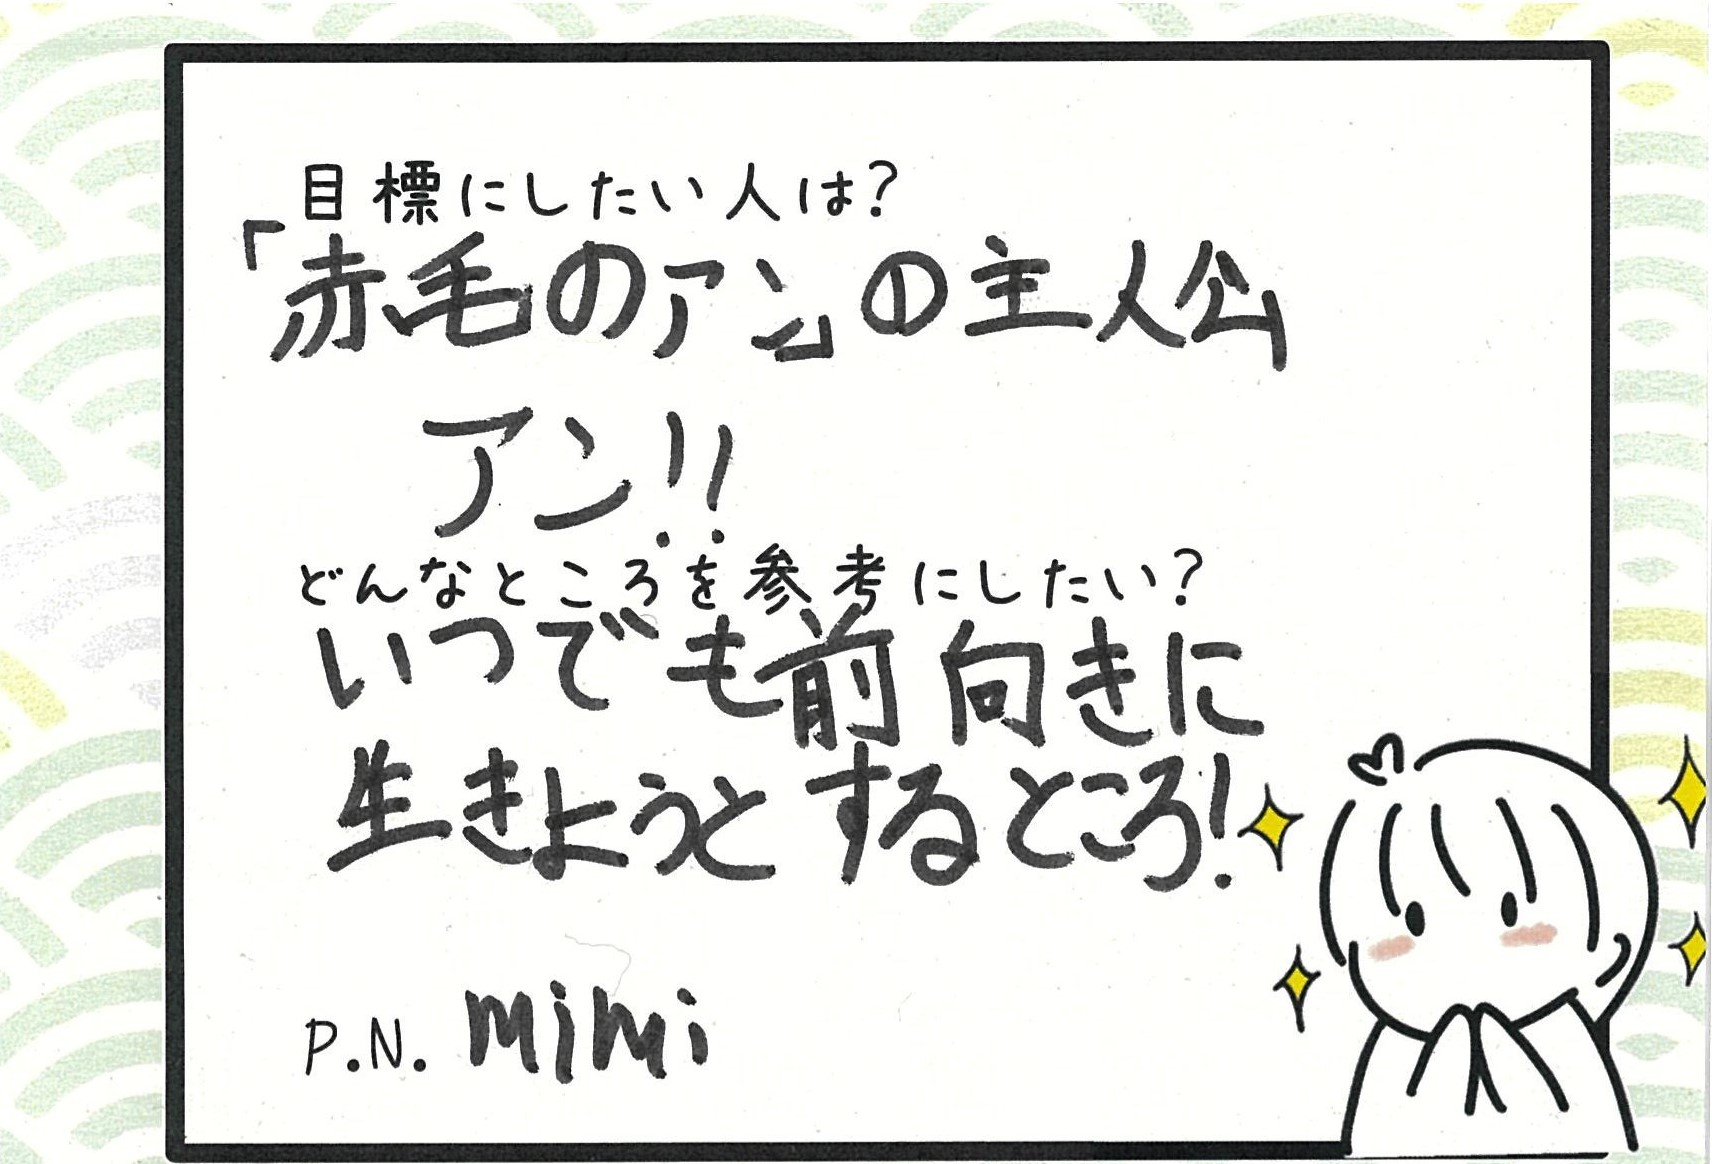 目標にしたい人は?
「赤毛のアン」の主人公
アン!!
どんなところを参考にしたい?
いつでも前向きに
生きようとするところ!
P.N. mimi